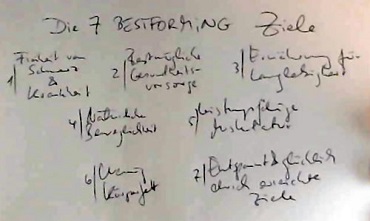 Die 7 BESTFORMING Ziele
1) Freiheit von
Schmerz
&
Krankheit
2) Bestmögliche
Gesundheits-
vorsorge
3) Ernährung für
Langlebigkeit
4) Natürliche
Beweglichkeit
5) Leistungsfähige
6) Wenig
Körperfett
7) Entspannt & glücklich
durch erreichte
Ziele